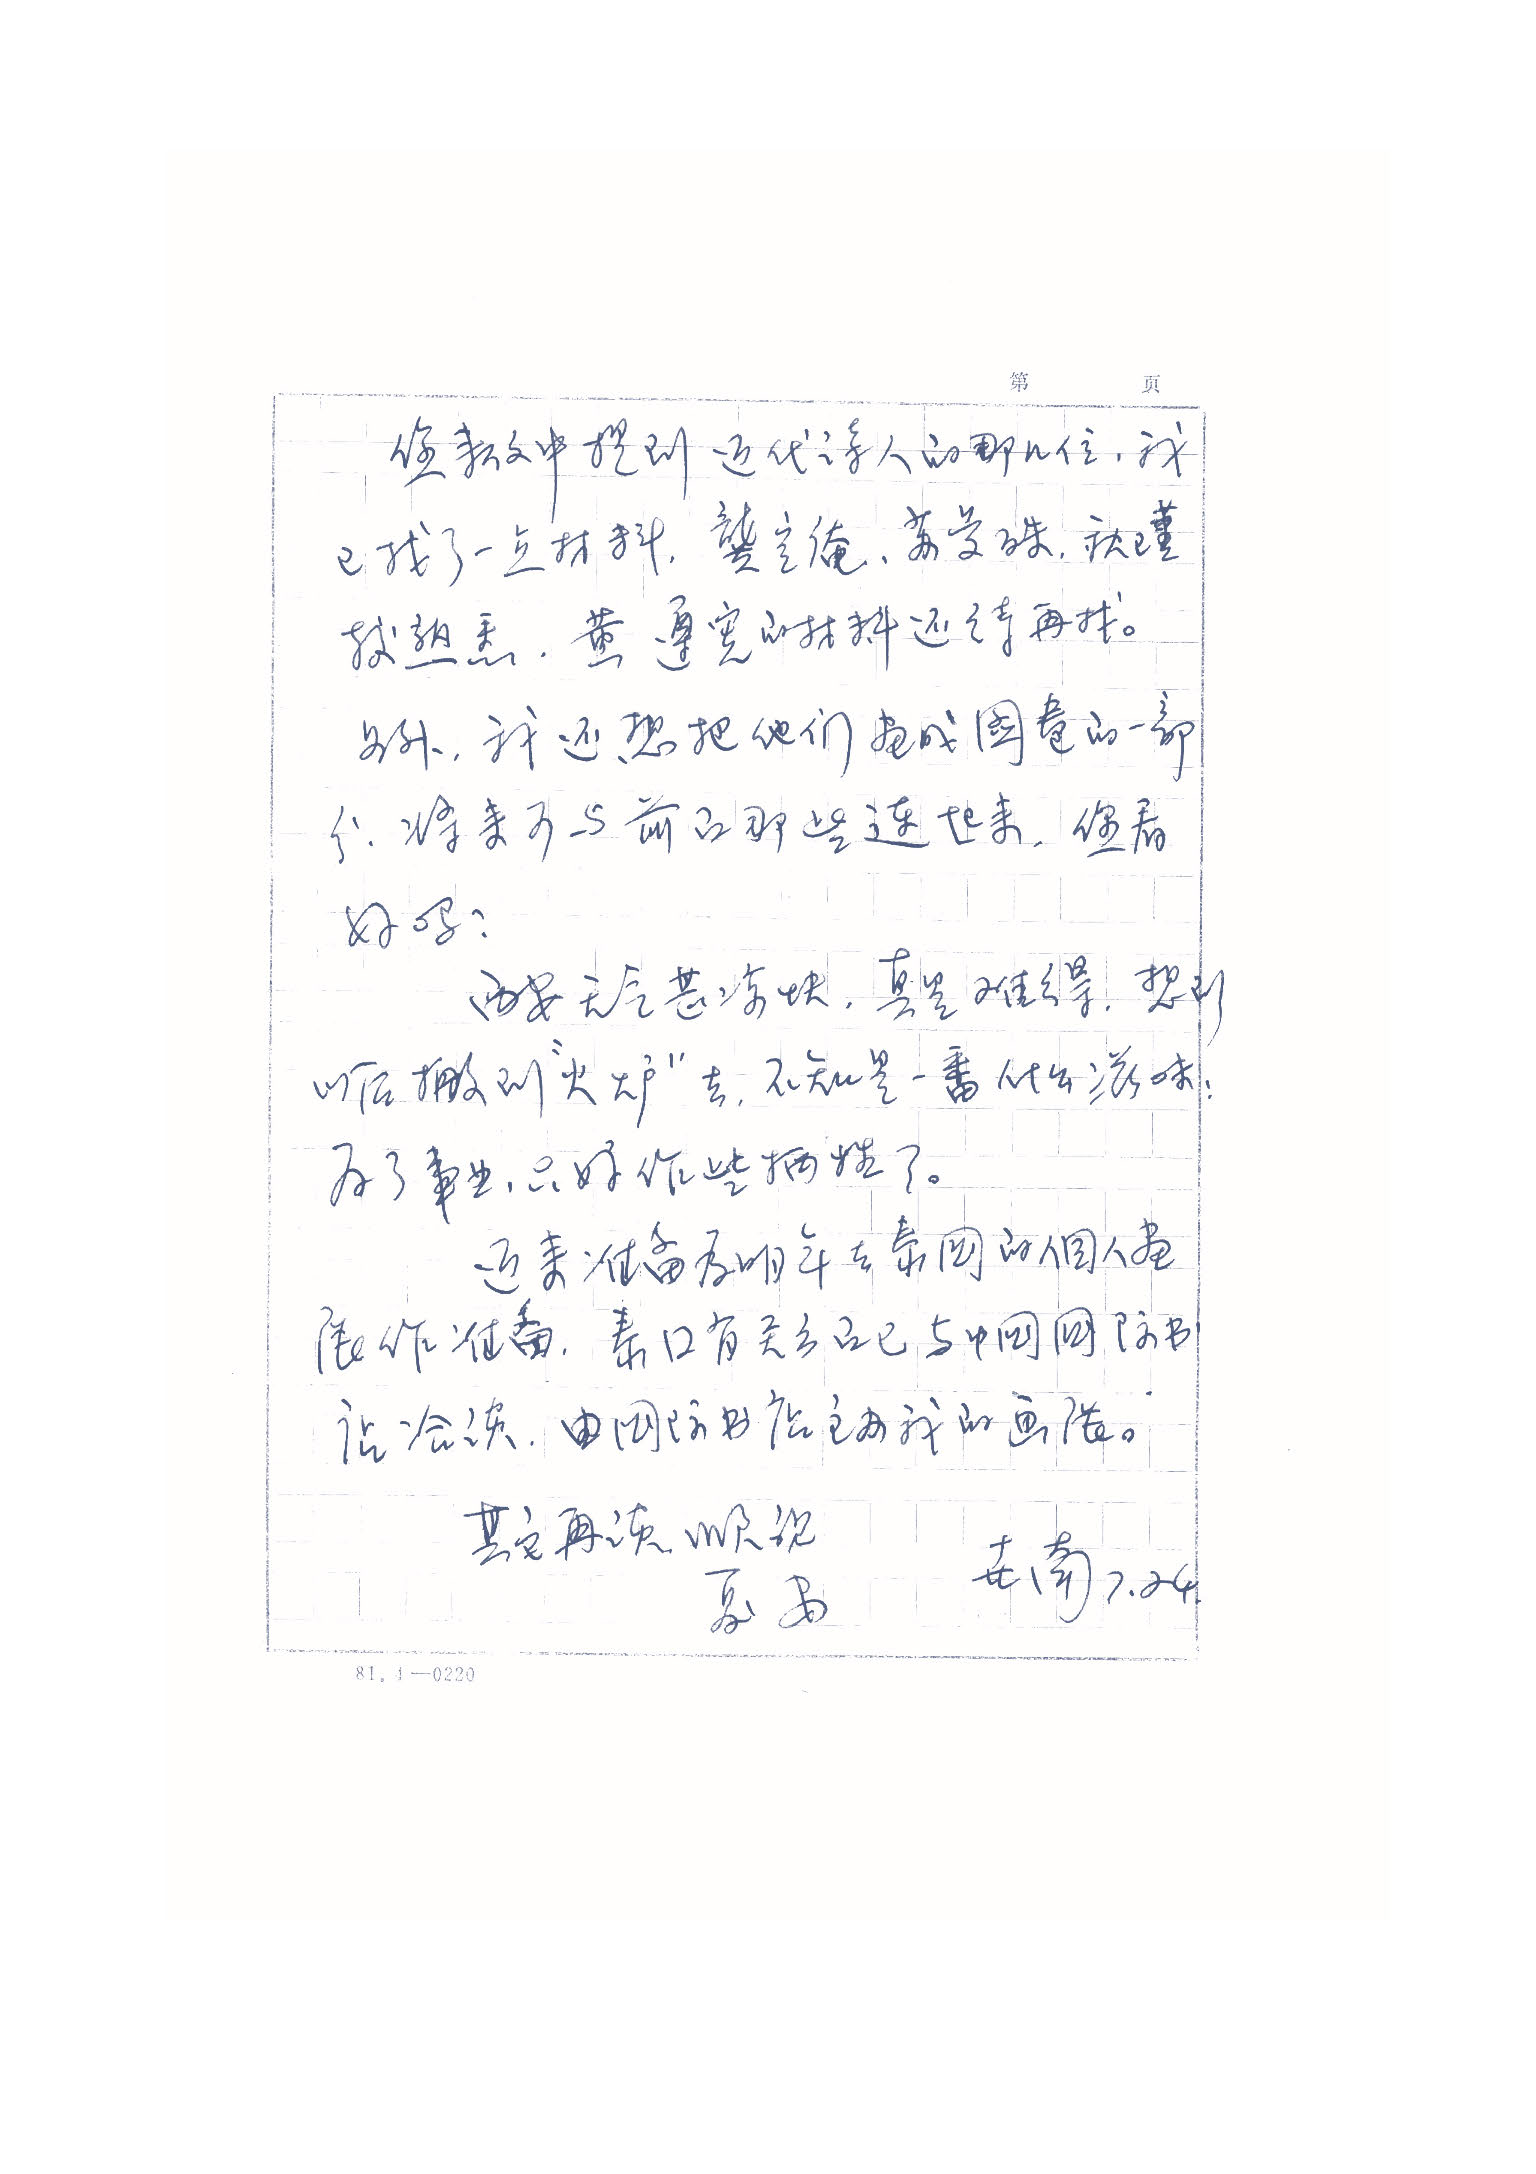 第 页
您来文中提到近代诗人的那几位，我
已找了一点材料，龚定庵、苏曼殊，秋瑾
较熟悉，黄遵宪的材料还得再找。
另外，我还想把他们画成图卷的一部
分，将来可与前面那些连起来，您看
好吗？
西安天气甚凉快，真是难得，想到
以后搬到“火炉”去，不知是一番什么滋味；
为了事业，只好作些牺牲了。
近来准备为明年去泰国的個人畫
展作准备，泰国有关方面已与中国国际书
店洽谈，由国际书店主办我的画展。
其它再谈，顺祝
夏安
世南 7.24.
81.4—0220